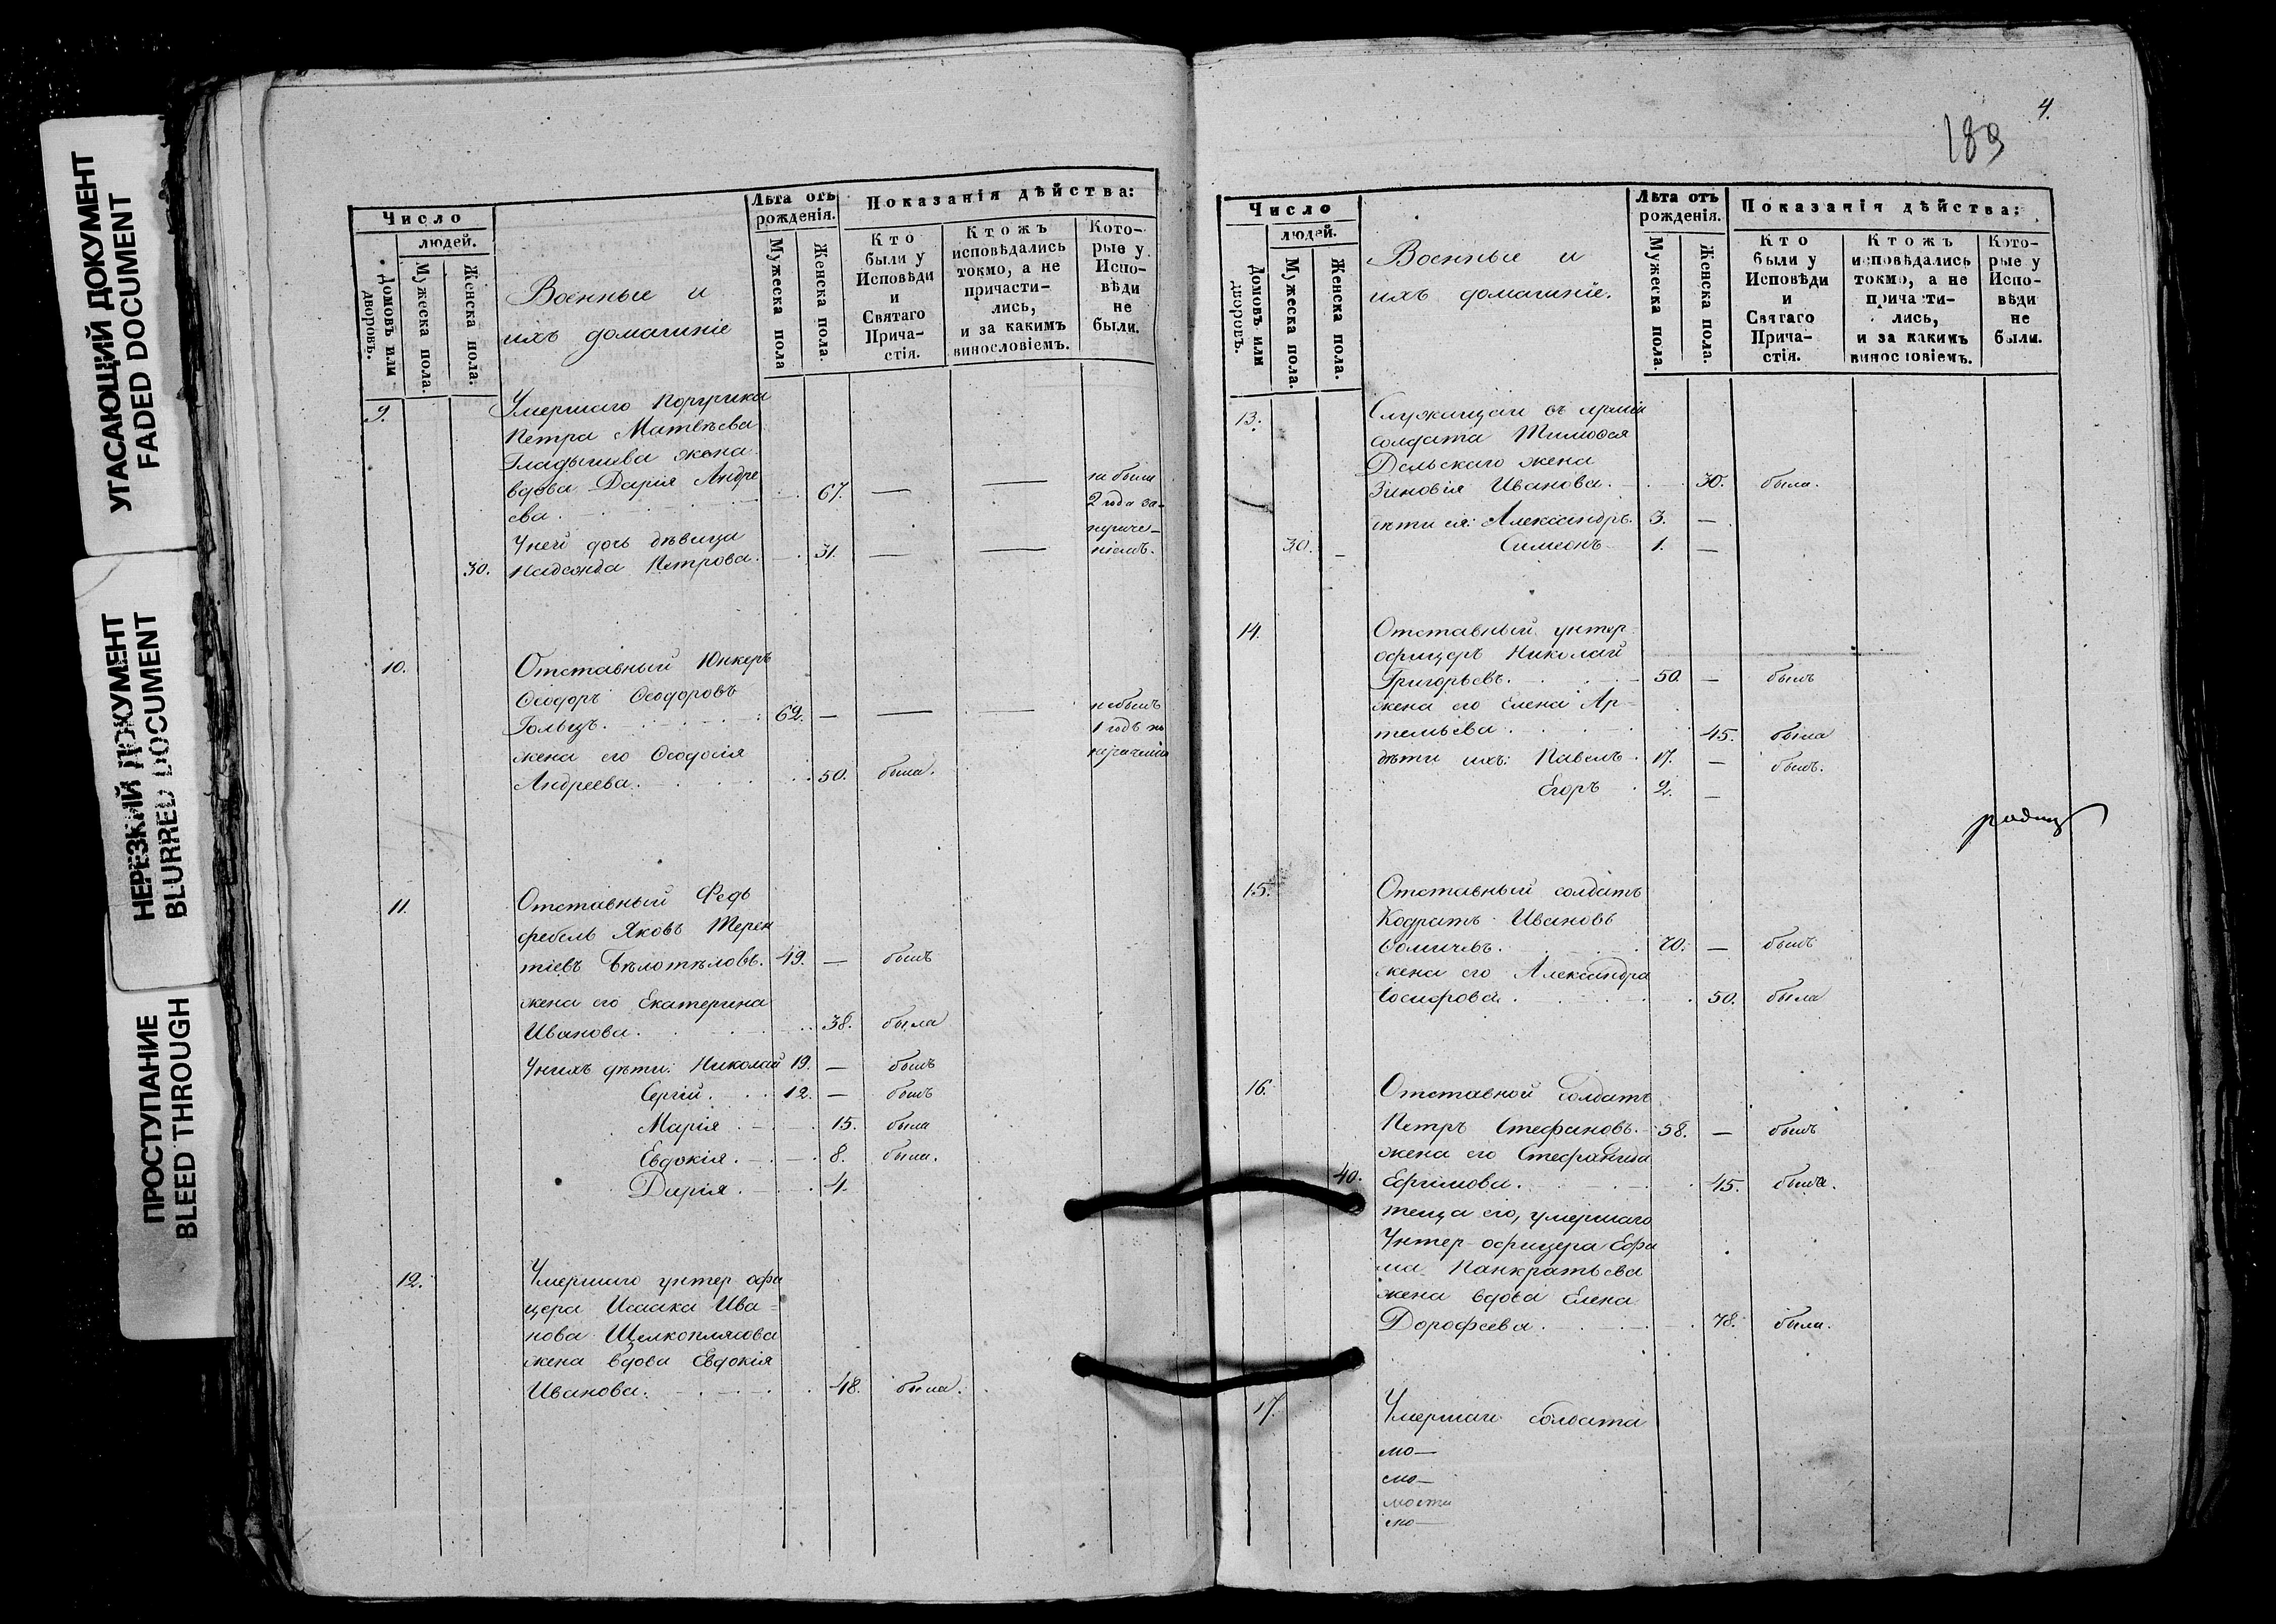 УГАСАЮЩИЙ ДОКУМЕНТ
FADED DOCUMENT
НЕРЕЗКИЙ ДОКУМЕНТ
BLURRED DOCUMENT
ПРОСТУПАНИЕ
BLEED THROUGH
Число
людей.
Домовъ или дворовъ.
Мужеска пола.
Женска пола.
Военные и
ихъ домашніе
Лѣта отъ
рожденія.
Мужеска пола
Женска пола.
Показанія дѣйства:
Кто
были у
Исповѣди
и
Святаго
Прича-
стія.
Ктожъ
исповѣдались
токмо, а не
причасти-
лись,
и за какимъ
винословіемъ.
Кото-
рые у
Испо-
вѣди
не
были.
9. Умершаго
Петра Матвѣева
Гладышева жена
вдова Дарія Андре 67. — — не были
ева 2 года за
У ней дочь дѣвица
30. Петрова. 31. — —
10. Отставный Юнкеръ
Ѳеодоръ Ѳеодоровъ
Гольцъ. 62. — — — не былъ
жена его Ѳеодосія 1 годъ
Андреева. 50. была.
11. Отставный Фелъ
фебель Яковъ Терен
тіевъ Бѣлотѣловъ. 49. — былъ
жена его Екатерина
Иванова. 38. была
У нихъ дѣти: Николай 19. — былъ
Сергій. 12. — былъ
Марія 15. была
Евдокія. 8. была.
Дарія. 4.
12. Умершаго унтер офи
цера Исаака Ива=
нова Щелкоплясова
жена вдова Евдокія
Иванова. 48. была.
4.
189
Число
людей.
Домовъ или дворовъ.
Мужеска пола.
Женска пола.
Военные и
ихъ домашніе.
Лѣта отъ
рожденія.
Мужеска пола.
Женска пола.
Показанія дѣйства:
Кто
были у
Исповѣди
и
Святаго
Прича-
стія.
Ктожъ
исповѣдались
токмо, а не
причасти-
лись,
и за какимъ
винословіемъ.
Кото-
рые у
Испо-
вѣди
не
были.
13. Служащаго въ арміи
солдата Тимоѳея
Дельскаго жена
Зиновія Иванова. 30. была.
дѣти ея: Александръ. 3. —
30. — Симеонъ 1. —
14. Отставный унтер
офицеръ Николай
Григорьевъ. 50. — былъ
жена его Елена Ар-
темьева 45. была
дѣти ихъ: Павелъ. 17. — былъ.
Егоръ 2. —
15. Отставный солдатъ
Кодратъ Ивановъ
Ѳомичевъ. 70. — былъ
жена его Александра
Іосифова. 50. была
16. Отставной солдатъ
Петръ Стефановъ. 58. — былъ
жена его Стефанида
40. Ефимова. 45. была.
теща его, умершаго
Унтер-офицера Ефи
ма Панкратьева
жена вдова Елена
Дорофеева. 78. была.
17. Умершаго солдата